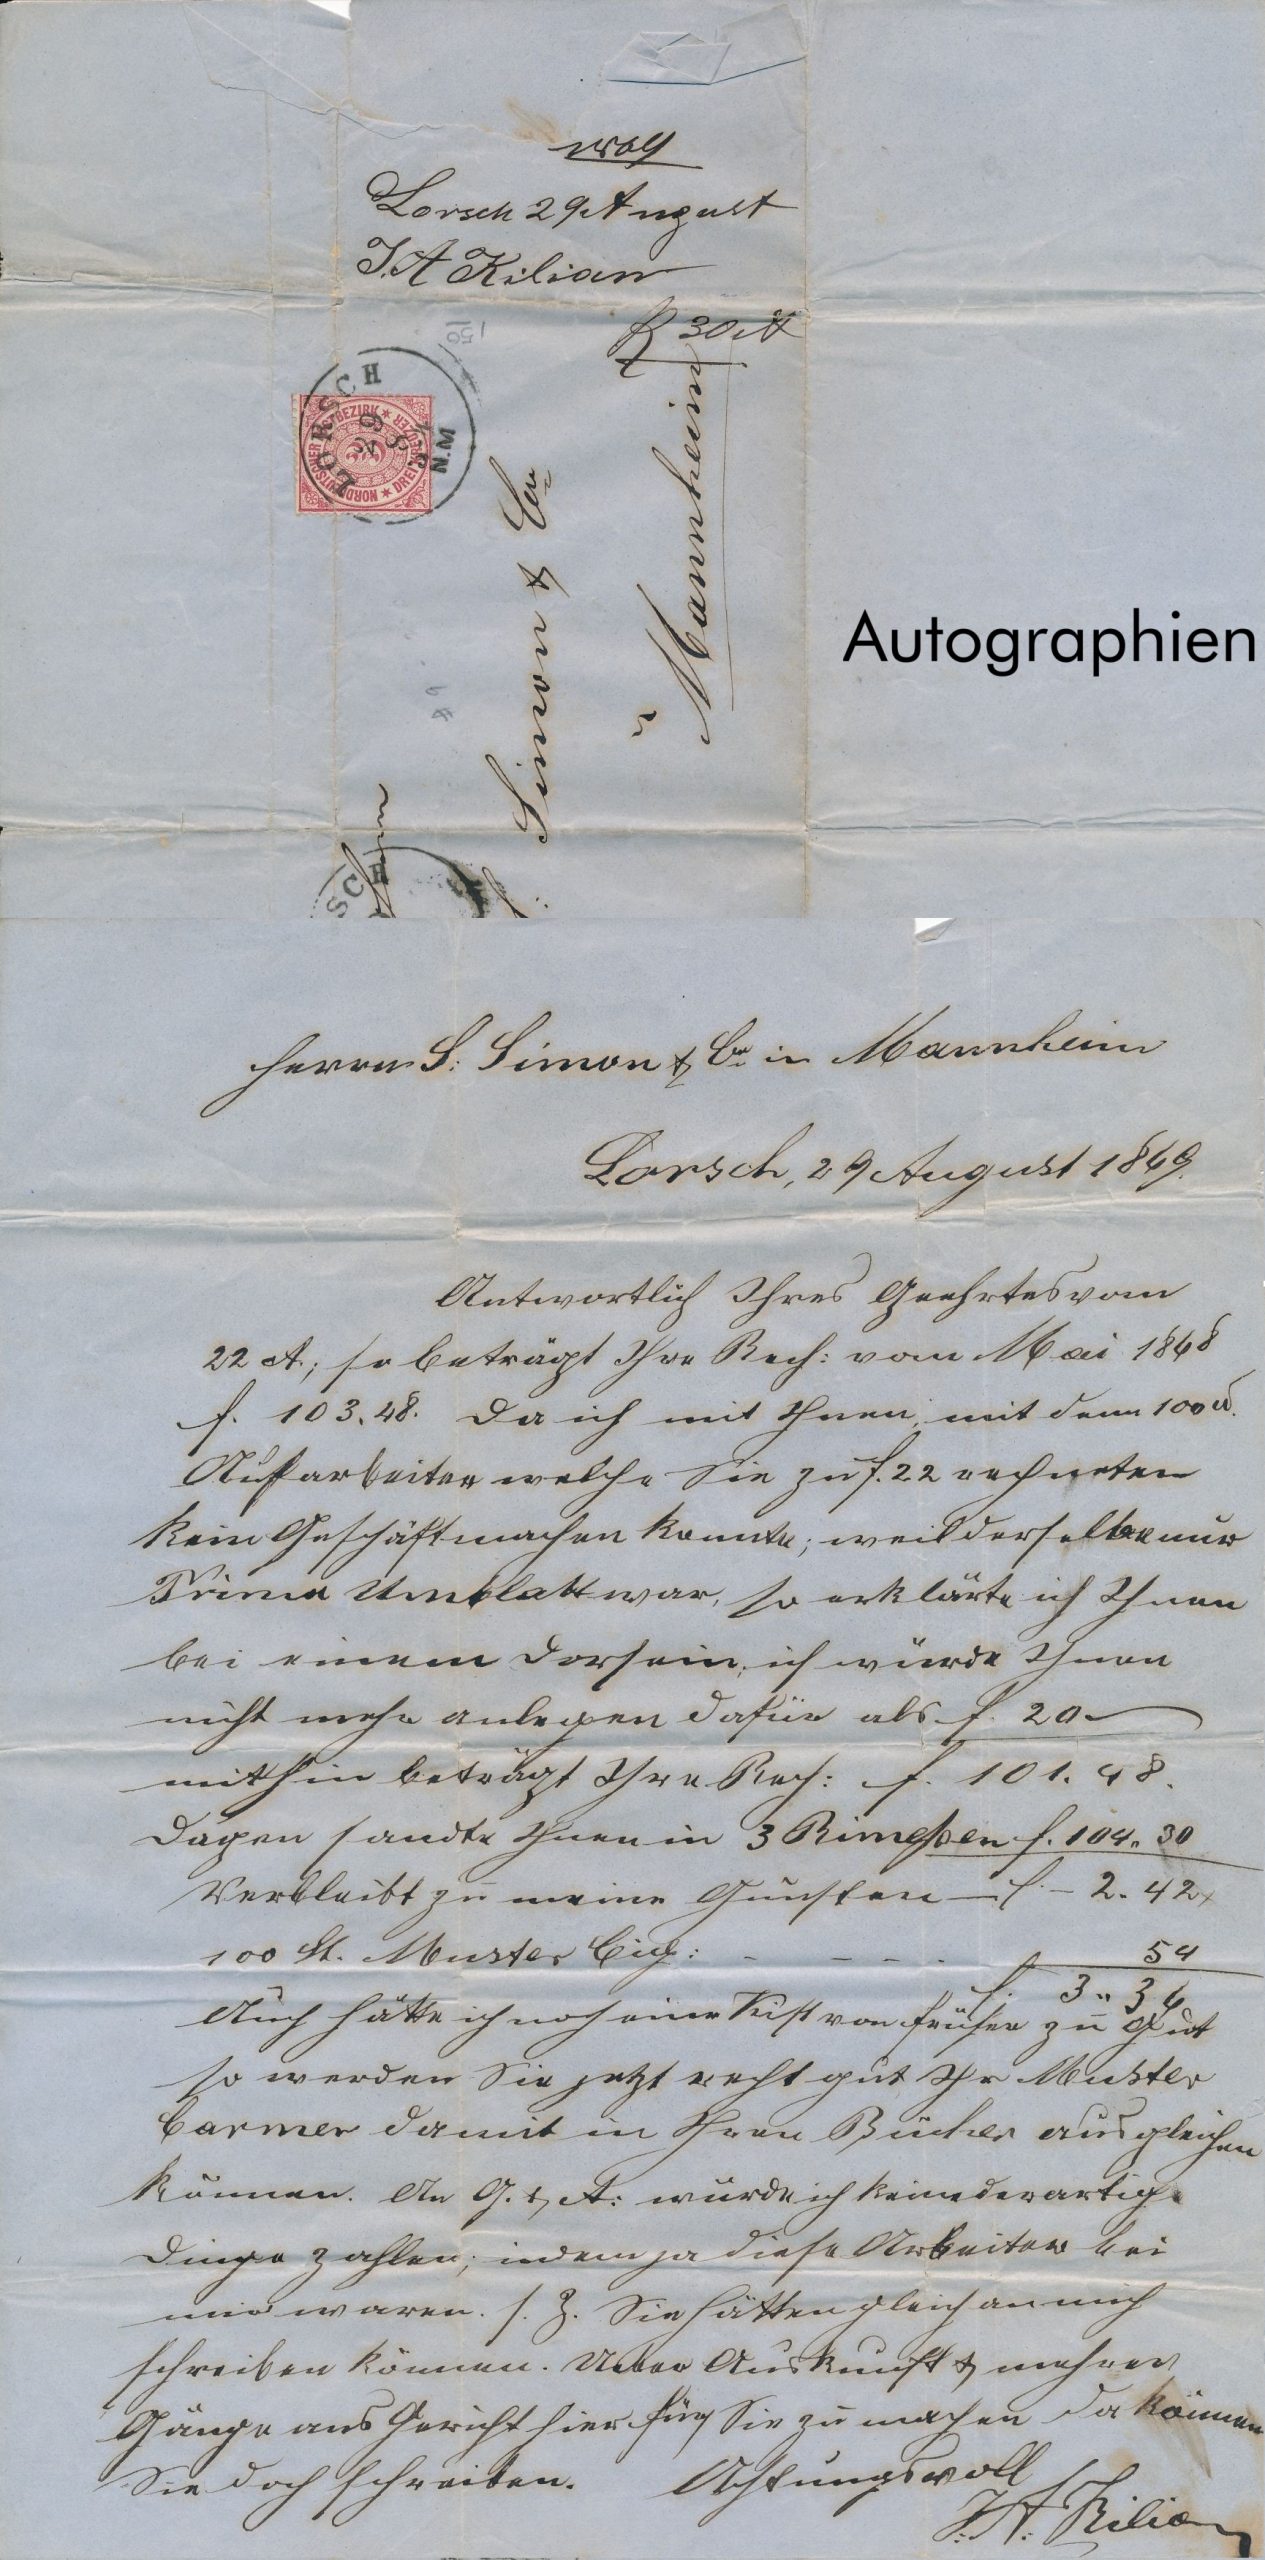 1869
Lorsch 29 August
J. A Kilian
R 30 A
150
LORSCH
29 8
N.M
NORDDEUTSCHER POSTBEZIRK * DREI KREUZER *
3
Autographien
Simon & Cie
in
Mannheim
SCH
Herren S: Simon & Cie in Mannheim
Lorsch, 29 August 1869.
Antwortlich Ihres Geehrtes vom
22 ct.; so beträgt Ihre Rech: vom Mai 1868
f. 103.48. Da ich mit Ihnen, mit dem 100
Aufarbeiter welche Sie zu f. 22 rechneten
kein Geschäft machen konnte; weil derselbe nur
Prima Umblatt war, so erklärte ich Ihnen
bei einem Dorsein, ich würde Ihnen
nicht mehr anlegen dafür als f. 20
mithin beträgt Ihre Rech: f. 101. 48.
Dagen sandte Ihnen in 3 Rimeßen f. 104. 30
Verbleibt zu meine Gunsten — f. — 2. 42x
100 St. Muster Cig: - - - - 54
f. 3 " 36
Auch hätte ich noch eine Kist von früher zu Gut
so werden Sie jetzt recht gut Ihr Muster
Carmer damit in Ihren Bücher ausgleichen
können. An G. & A: würde ich keine derartig.
Dinge zahlen; indem ja diese Arbeiter bei
mir waren. s. Z. Sie hätten gleich an mich
schreiben können. Ueber Auskunft & mehrer
Gänge ans Gericht hier für Sie zu machen da können
Sie doch schreiben. Achtungsvoll
J. A: Kilian